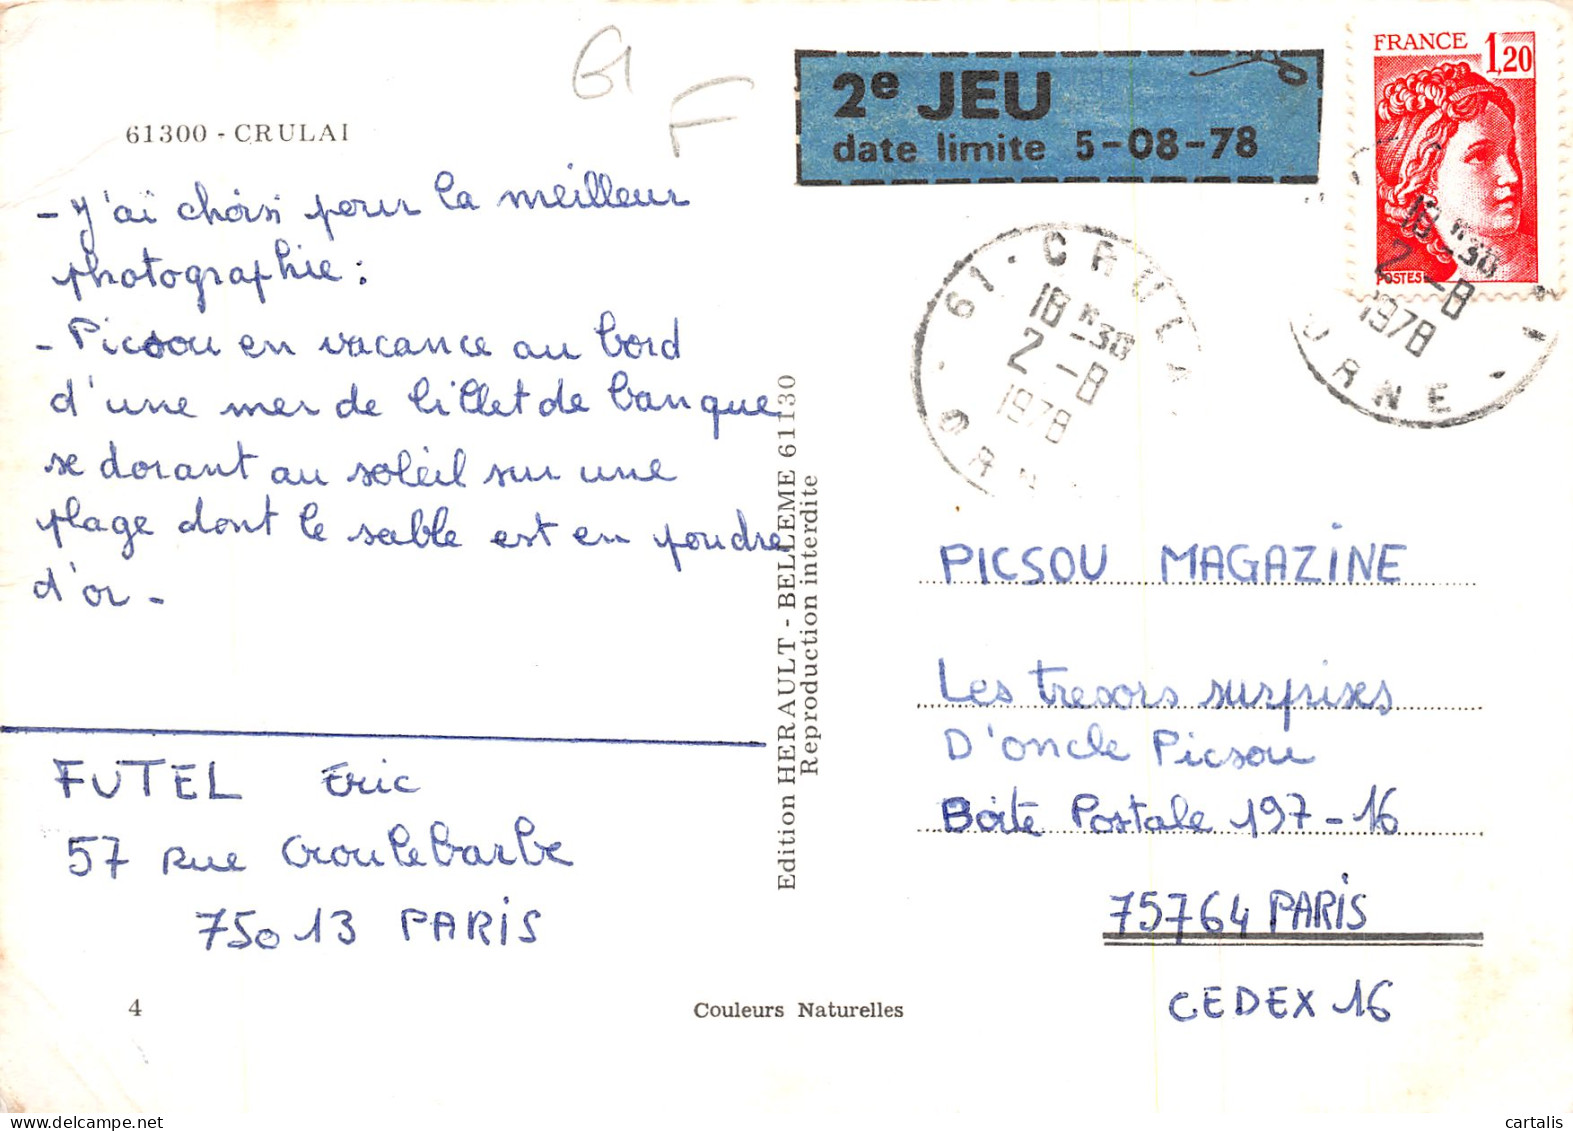 61300 - CRULAI
G1
F
2e JEU
date limite 5-08-78
FRANCE 1,20
POSTES
61 - CRULA
18 H 30
2 - 8
1978
ORN
18 H 30
2 - 8
1978
ORNE
- J'ai choisi pour la meilleur
photographie :
- Picsou en vacance au bord
d'une mer de billet de banque
se dorant au soleil sur une
plage dont le sable est en poudre
d'or -
FUTEL Eric
57 Rue Croulebarbe
75013 PARIS
4
Edition HERAULT - BELLEME 61130
Reproduction interdite
Couleurs Naturelles
PICSOU MAGAZINE
Les tresors surprises
D'oncle Picsou
Boite Postale 197-16
75764 PARIS
CEDEX 16
cartalis